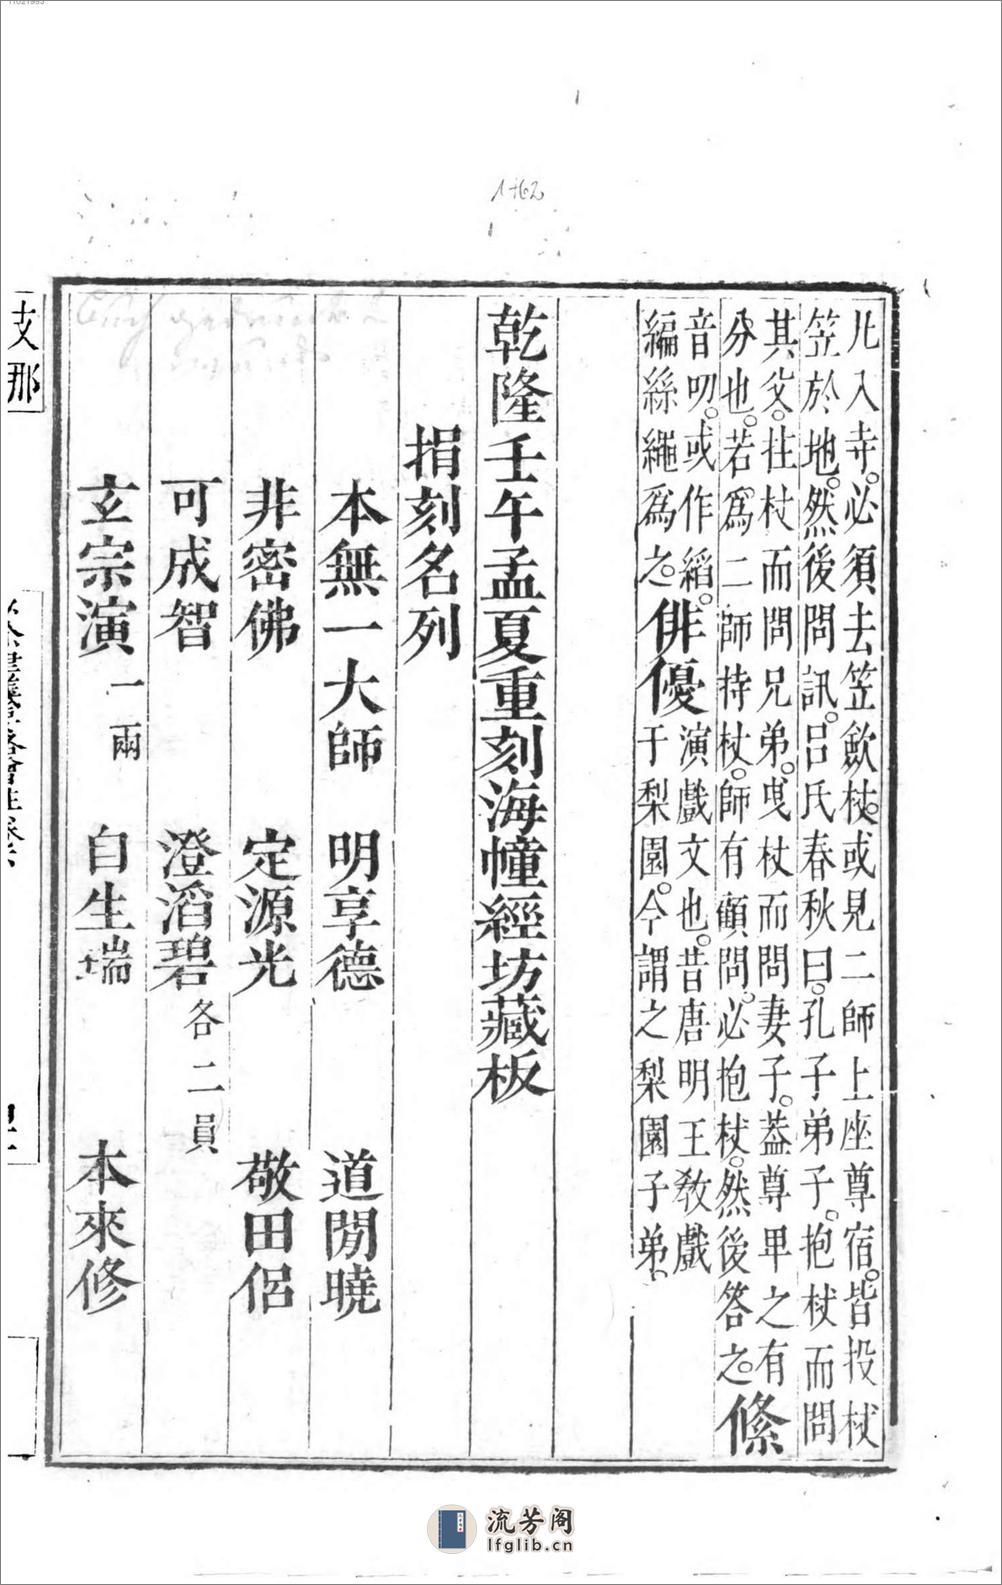 凡入寺。必須去笠斂杖。或見二師上座尊宿。皆投杖
笠於地。然後問訊。呂氏春秋曰。孔子弟子。抱杖而問
其父。拄杖而問兄弟。曳杖而問妻子。葢尊卑之有
分也。若爲二師持杖。師有顧問。必抱杖。然後答之。絛
音叨。或作縚。
編絲繩爲之。俳優
演戲文也。昔唐明王敎戲
于梨園。今謂之梨園子弟。
乾隆壬午孟夏重刻海幢經坊藏板
捐刻名列
本無一大師 明享德 道閒曉
非密佛 定源光 敬田侶
可成智 澄滔碧 各二員
玄宗演 一兩 自生瑞 本來修
支那
1462
流芳阁
lfglib.cn
11021993